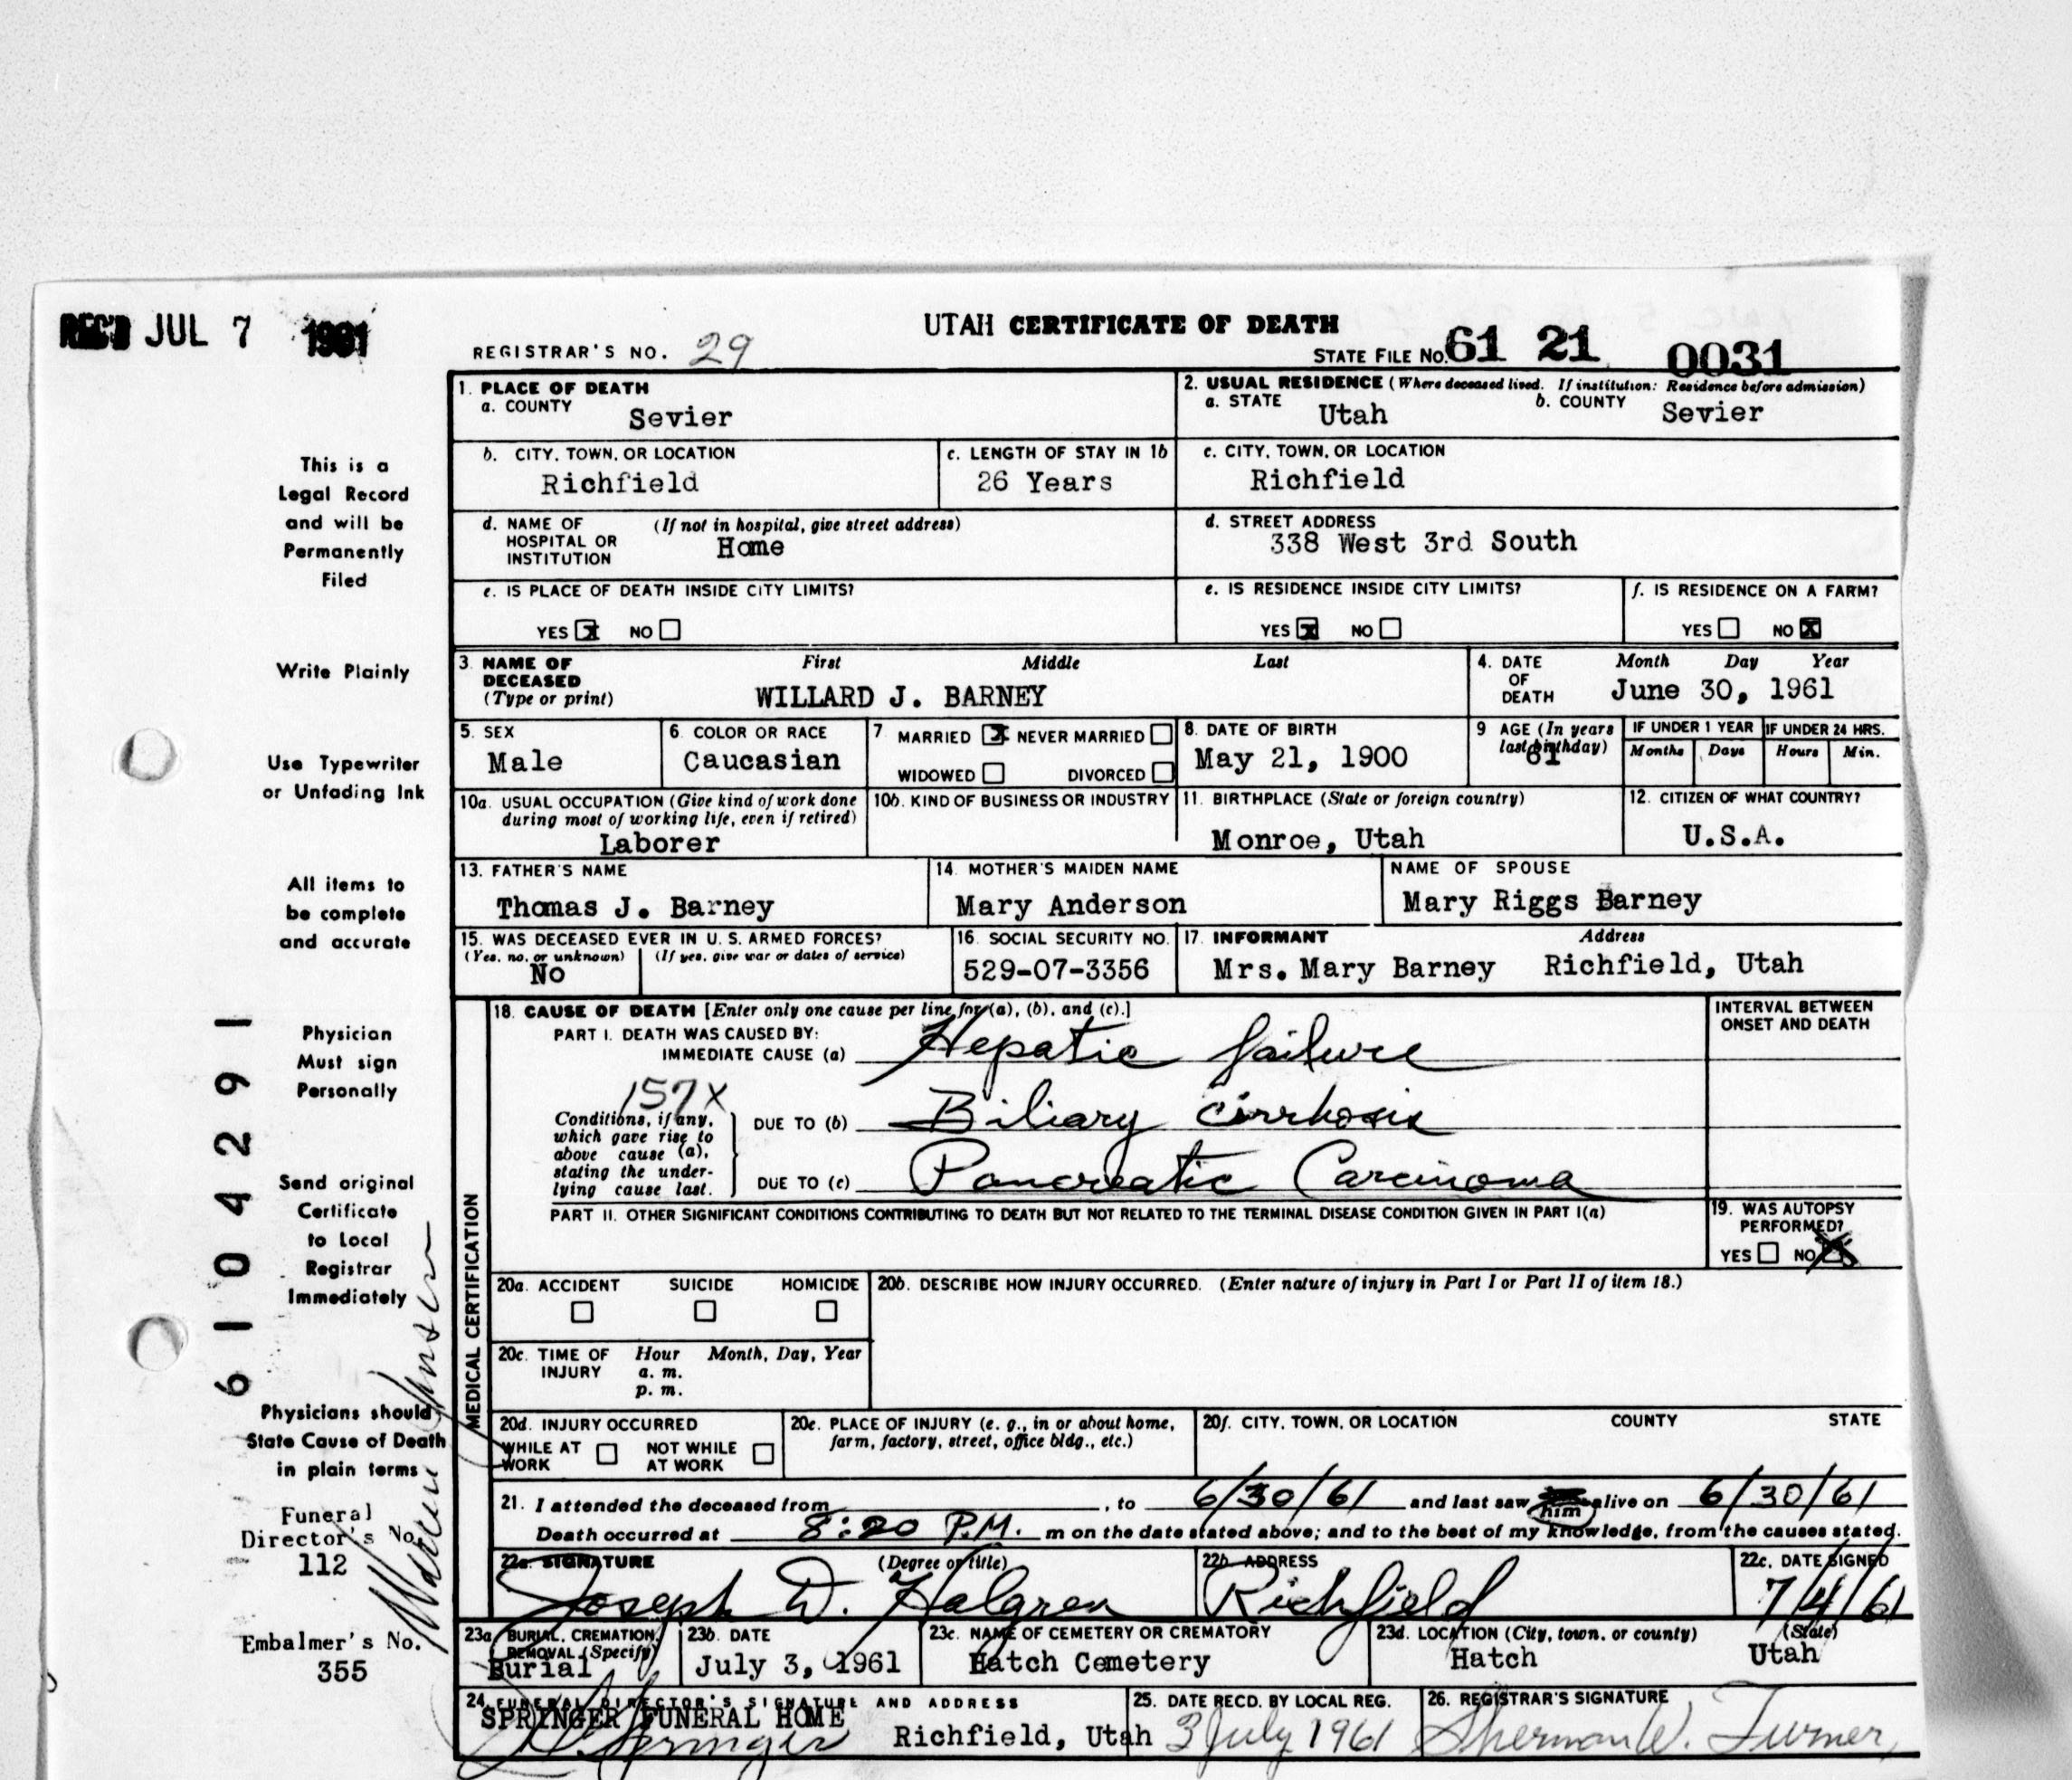 REC'D JUL 7 1961
UTAH CERTIFICATE OF DEATH
REGISTRAR'S NO. 29
STATE FILE No. 61 21 0031
1. PLACE OF DEATH
a. COUNTY Sevier
2. USUAL RESIDENCE (Where deceased lived. If institution: Residence before admission)
a. STATE Utah b. COUNTY Sevier
b. CITY, TOWN, OR LOCATION Richfield
c. LENGTH OF STAY IN 1b 26 Years
c. CITY, TOWN, OR LOCATION Richfield
d. NAME OF HOSPITAL OR INSTITUTION (If not in hospital, give street address) Home
d. STREET ADDRESS 338 West 3rd South
e. IS PLACE OF DEATH INSIDE CITY LIMITS?
YES x NO
e. IS RESIDENCE INSIDE CITY LIMITS?
YES x NO
f. IS RESIDENCE ON A FARM?
YES NO x
3. NAME OF DECEASED (Type or print) First Middle Last
WILLARD J. BARNEY
4. DATE OF DEATH Month Day Year
June 30, 1961
5. SEX Male
6. COLOR OR RACE Caucasian
7 MARRIED x NEVER MARRIED
WIDOWED DIVORCED
8. DATE OF BIRTH May 21, 1900
9 AGE (In years last birthday) 61
IF UNDER 1 YEAR Months Days
IF UNDER 24 HRS. Hours Min.
10a. USUAL OCCUPATION (Give kind of work done during most of working life, even if retired)
Laborer
10b. KIND OF BUSINESS OR INDUSTRY
11. BIRTHPLACE (State or foreign country)
Monroe, Utah
12. CITIZEN OF WHAT COUNTRY?
U.S.A.
13. FATHER'S NAME
Thomas J. Barney
14. MOTHER'S MAIDEN NAME
Mary Anderson
NAME OF SPOUSE
Mary Riggs Barney
15. WAS DECEASED EVER IN U. S. ARMED FORCES?
(Yes, no, or unknown) (If yes, give war or dates of service)
No
16. SOCIAL SECURITY NO.
529-07-3356
17. INFORMANT Address
Mrs. Mary Barney Richfield, Utah
MEDICAL CERTIFICATION
18. CAUSE OF DEATH [Enter only one cause per line for (a), (b), and (c).]
INTERVAL BETWEEN ONSET AND DEATH
PART I. DEATH WAS CAUSED BY:
IMMEDIATE CAUSE (a) Hepatic failure
157X
Conditions, if any, which gave rise to above cause (a), stating the underlying cause last.
DUE TO (b) Biliary cirrhosis
DUE TO (c) Pancreatic Carcinoma
PART II. OTHER SIGNIFICANT CONDITIONS CONTRIBUTING TO DEATH BUT NOT RELATED TO THE TERMINAL DISEASE CONDITION GIVEN IN PART I(a)
19. WAS AUTOPSY PERFORMED?
YES NO X
20a. ACCIDENT SUICIDE HOMICIDE
20b. DESCRIBE HOW INJURY OCCURRED. (Enter nature of injury in Part I or Part II of item 18.)
20c. TIME OF INJURY Hour Month, Day, Year
a. m.
p. m.
20d. INJURY OCCURRED
WHILE AT WORK NOT WHILE AT WORK
20e. PLACE OF INJURY (e. g., in or about home, farm, factory, street, office bldg., etc.)
20f. CITY, TOWN, OR LOCATION COUNTY STATE
21. I attended the deceased from , to 6/30/61 and last saw him alive on 6/30/61
Death occurred at 8:20 P.M. m on the date stated above; and to the best of my knowledge, from the causes stated.
22a. SIGNATURE (Degree or title)
Joseph D. Halgren
22b. ADDRESS
Richfield
22c. DATE SIGNED
7/4/61
23a. BURIAL, CREMATION, REMOVAL (Specify)
Burial
23b. DATE
July 3, 1961
23c. NAME OF CEMETERY OR CREMATORY
Hatch Cemetery
23d. LOCATION (City, town, or county) (State)
Hatch Utah
24. FUNERAL DIRECTOR'S SIGNATURE AND ADDRESS
SPRINGER FUNERAL HOME
Springer Richfield, Utah
25. DATE RECD. BY LOCAL REG.
3 July 1961
26. REGISTRAR'S SIGNATURE
Sherman W. Turner
This is a
Legal Record
and will be
Permanently
Filed
Write Plainly
Use Typewriter
or Unfading Ink
All items to
be complete
and accurate
Physician
Must sign
Personally
Send original
Certificate
to Local
Registrar
Immediately
Physicians should
State Cause of Death
in plain terms
Funeral
Director's No.
112
Embalmer's No.
355
61 04291